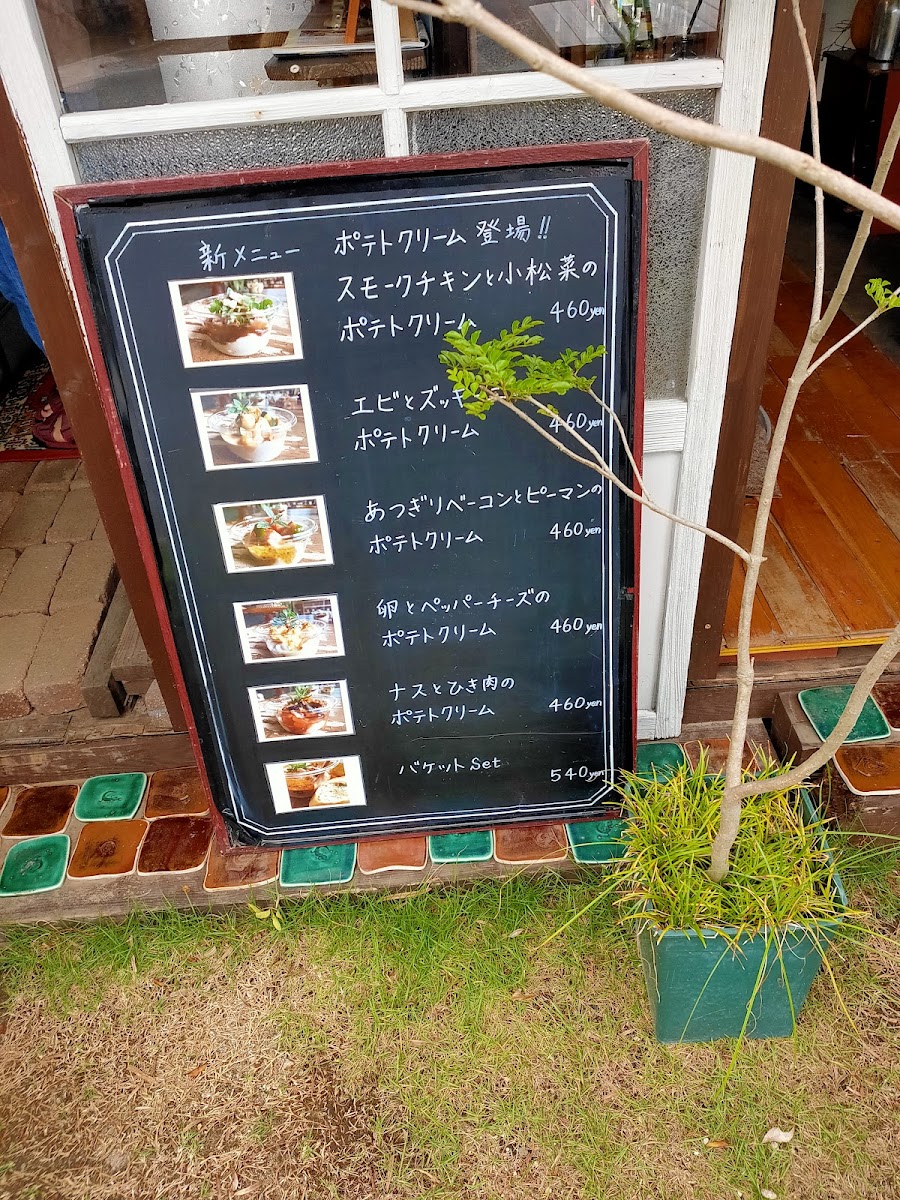 新メニュー ポテトクリーム 登場!!
スモークチキンと小松菜の
ポテトクリーム 460yen
エビとズッキ
ポテトクリーム 460yen
あつぎりベーコンとピーマンの
ポテトクリーム 460yen
卵とペッパーチーズの
ポテトクリーム 460yen
ナスとひき肉の
ポテトクリーム 460yen
バケットSet 540yen